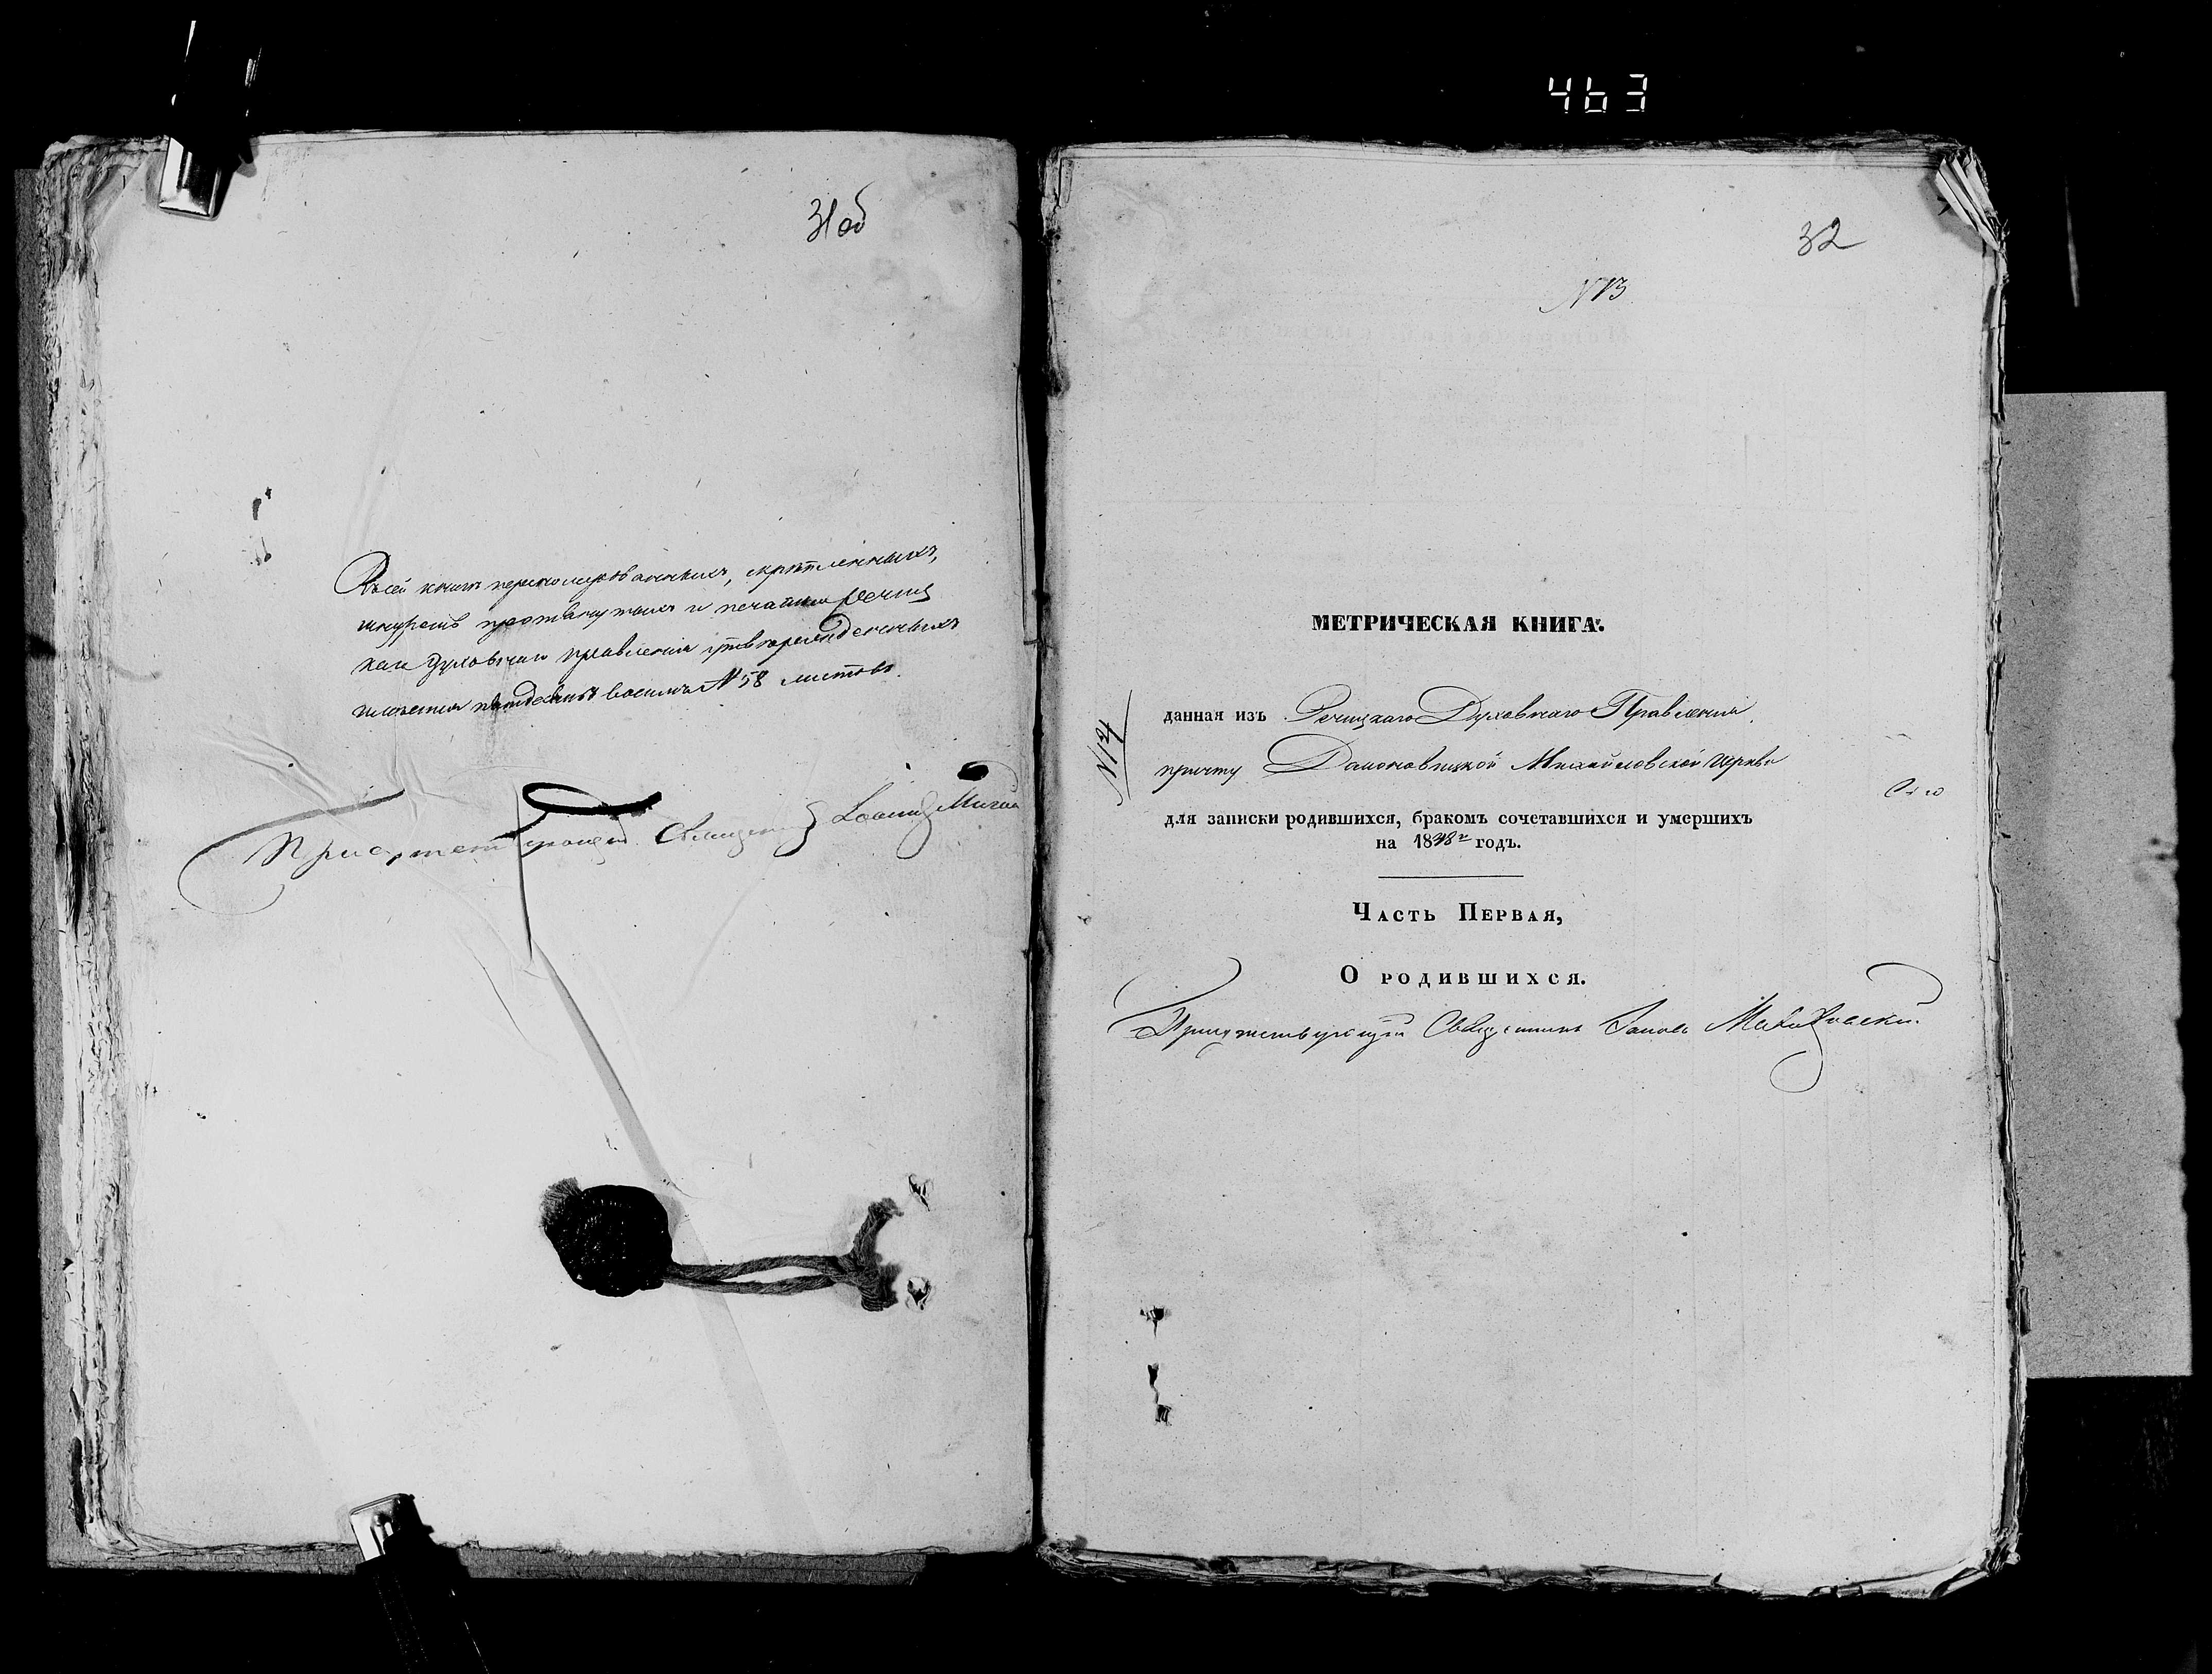 463
31об
Въ сей книгѣ перенумерованныхъ, скрѣпленныхъ,
шнуромъ протянутыхъ и печатью Речиц
каго Духовнаго Правленія утвержденныхъ
пятьдесятъ восемь N 58 листовъ.
Священ
32
N 13
МЕТРИЧЕСКАЯ КНИГА.
N 14
данная изъ Речицкаго Духовнаго Правленія
причту Домановицкой Михайловской церкви
для записки родившихся, бракомъ сочетавшихся и умершихъ
на 1848 г годъ.
Часть Первая,
О родившихся.
Присутствующій Священникъ